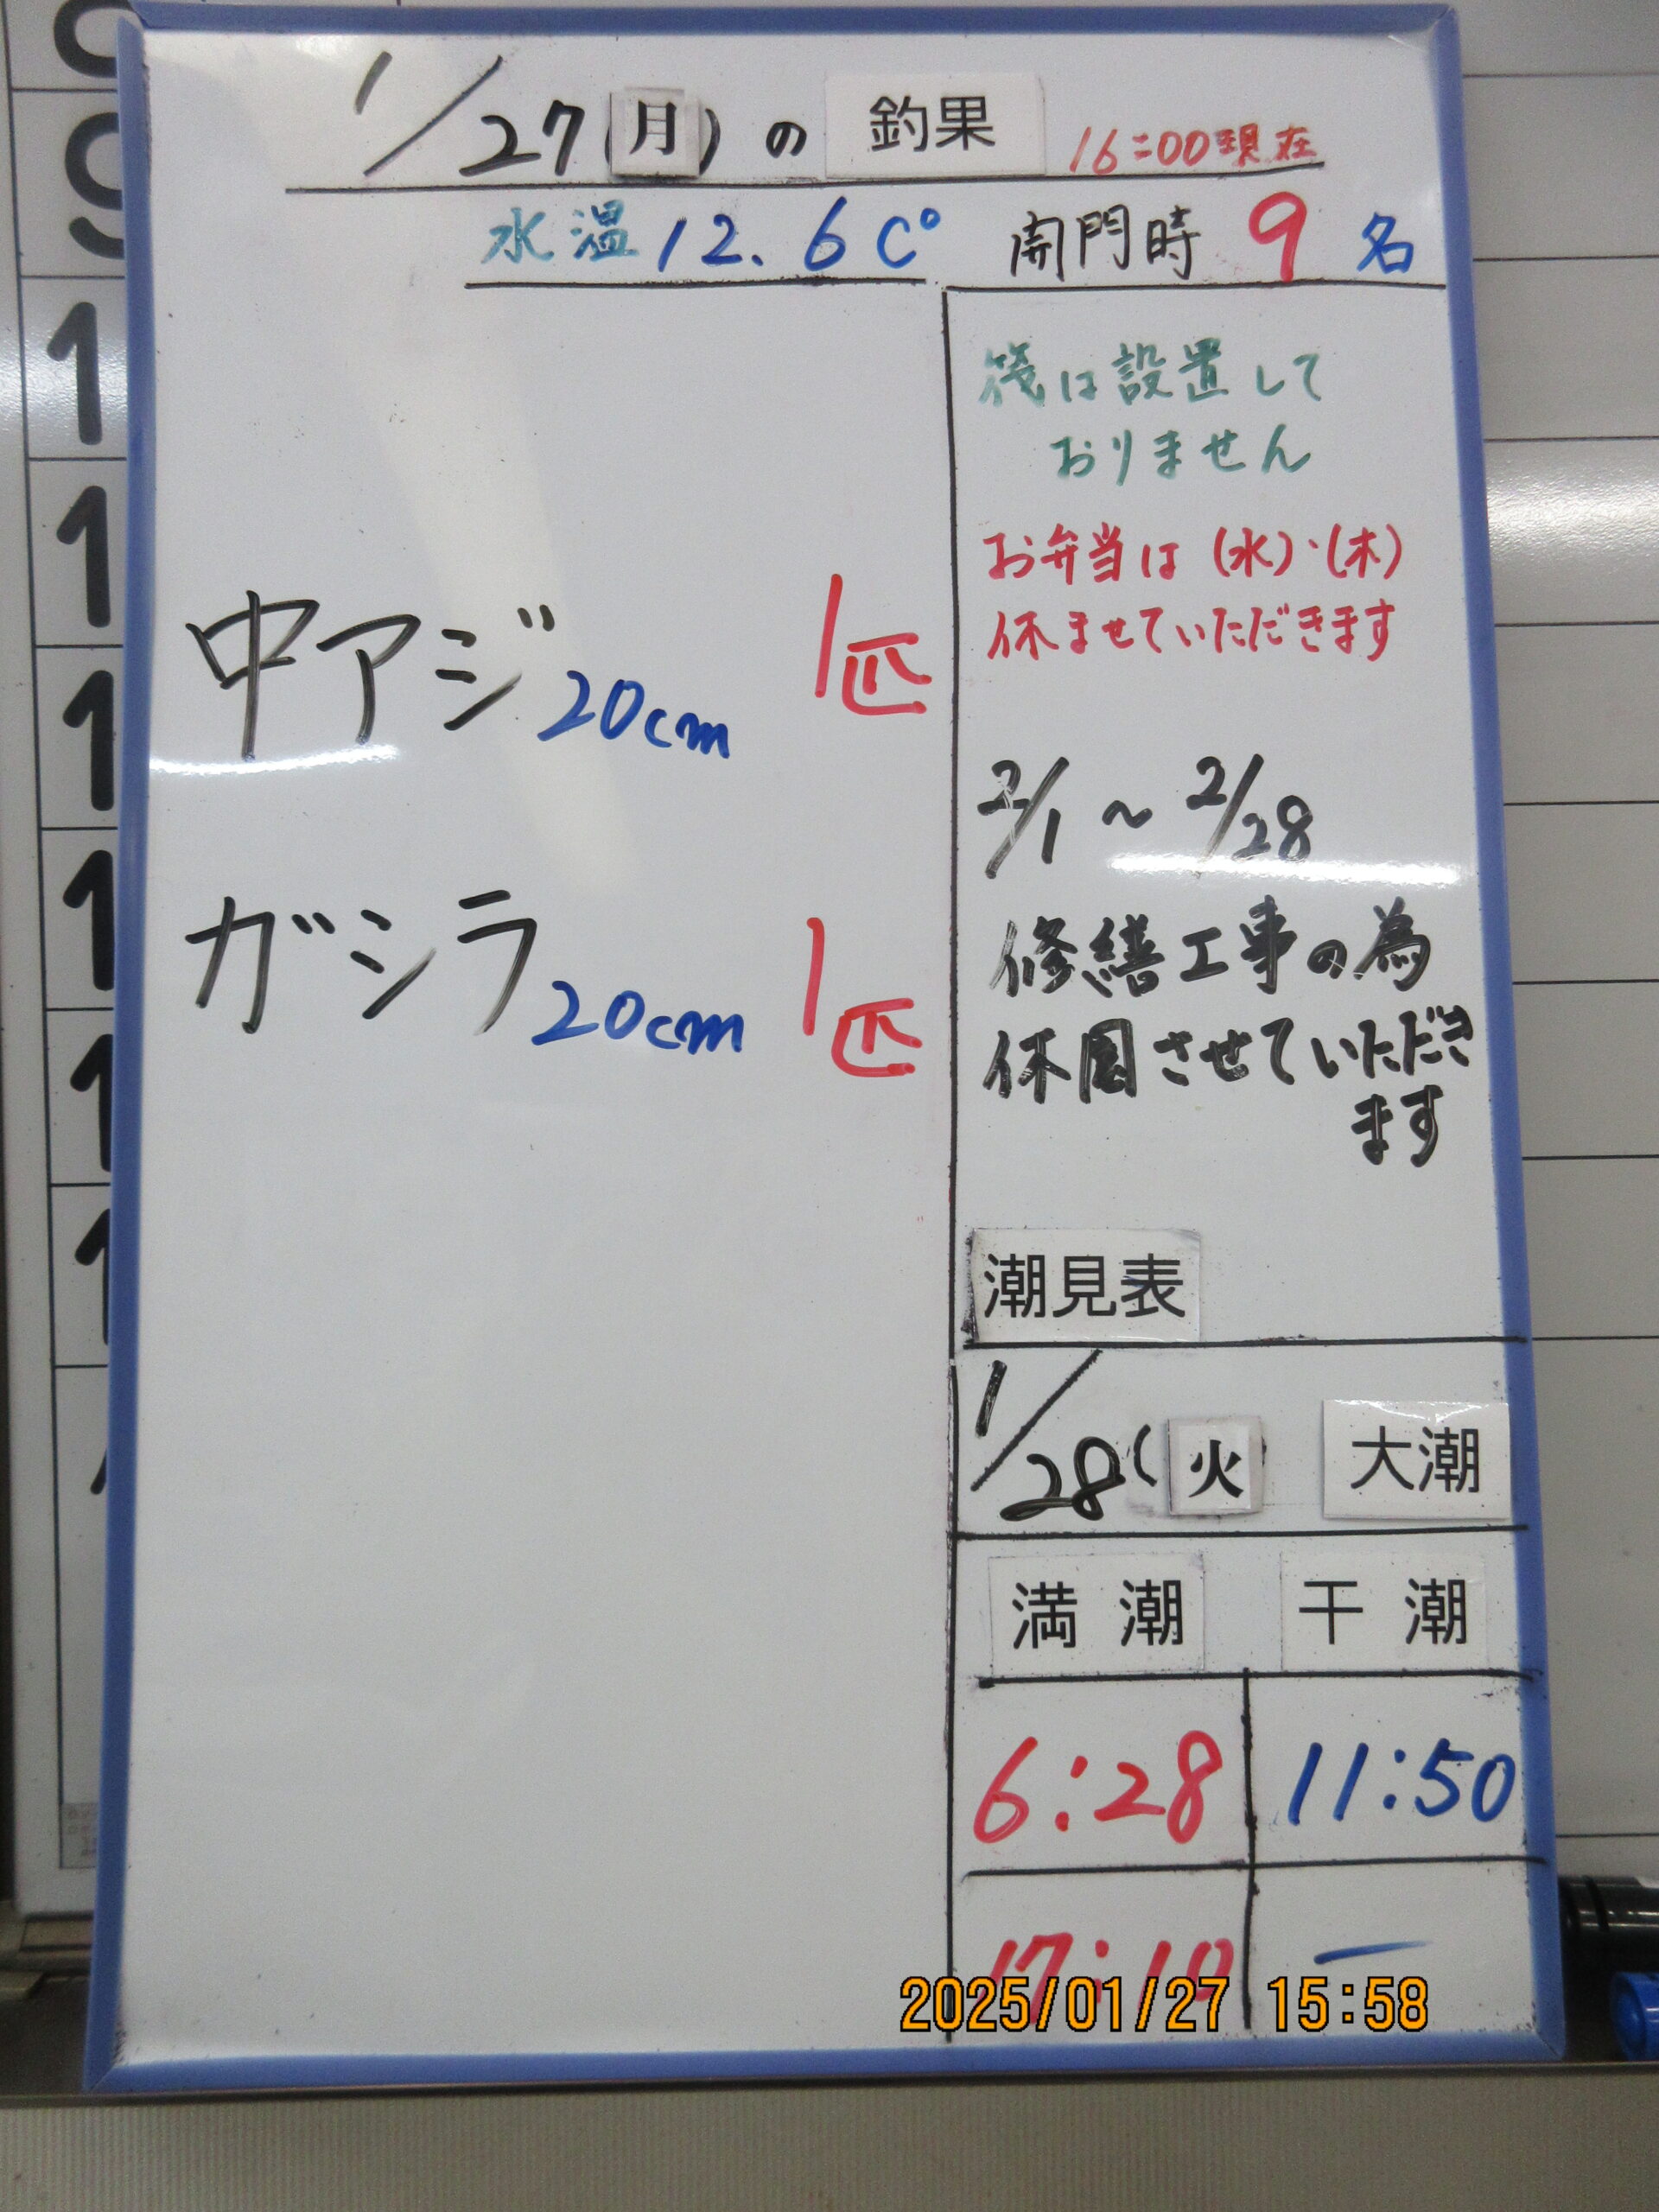 1/27(月)の 釣果 16:00現在
水温 12.6C° 開門時 9名
中アジ 20cm 1匹
ガシラ 20cm 1匹
筏は設置して
おりません
お弁当は(水)・(木)
休ませていただきます
2/1〜2/28
修繕工事の為
休園させていただき
ます
潮見表
1/28(火 大潮
満潮 干潮
6:28 11:50
17:10 ー
2025/01/27 15:58